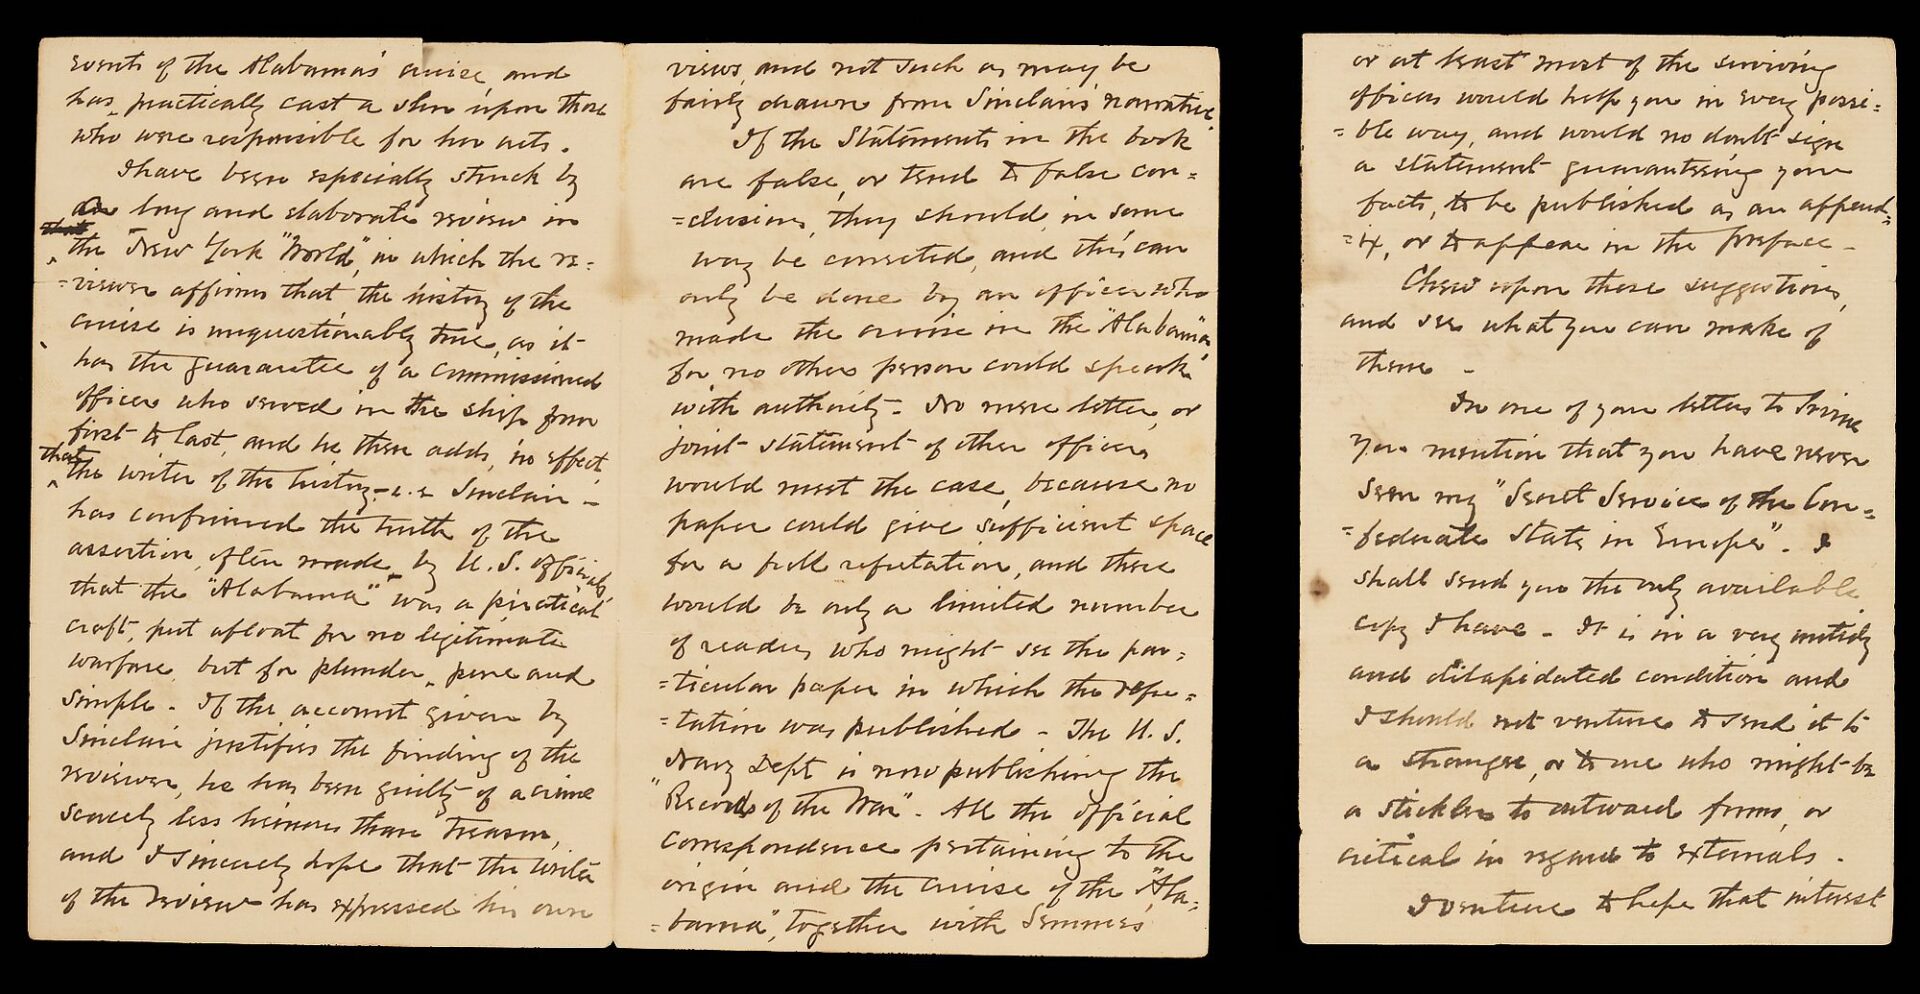 events of the Alabama's cruise, and
has practically cast a slur upon those
who were responsible for her acts.
I have been especially struck by
a long and elaborate review in
the New York "World", in which the re=
=viewer affirms that the history of the
cruise is unquestionably true, as it
has the guarantee of a commissioned
officer who served in the ship from
first to last, and he then adds, in effect
that
the writer of the history - i.e. Sinclair -
has confirmed the truth of the
assertion, often made, by U.S. Officials,
that the "Alabama" was a piratical
craft, put afloat for no legitimate
warfare, but for plunder, pure and
simple. If the account given by
Sinclair justifies the finding of the
reviewer, he has been guilty of a crime
scarcely less heinous than treason,
and I sincerely hope that the writer
of the review has expressed his own
views, and not such as may be
fairly drawn from Sinclair's narrative.
If the Statements in the book
are false, or tend to false con=
=clusions, they should, in some
way be corrected, and this can
only be done by an officer who
made the cruise in the "Alabama",
for no other person could speak
with authority. No mere letter, or
joint statement of other officers
would meet the case, because no
paper could give sufficient space
for a full refutation, and there
would be only a limited number
of readers who might see the par=
=ticular paper in which the refu=
=tation was published. The U.S.
Navy Dept is now publishing the
"Records of the War". All the official
correspondence pertaining to the
origin and the cruise of the "Ala=
=bama", together with Semmes'
or at least most of the surviving
officers would help you in every possi=
=ble way, and would no doubt sign
a statement guaranteeing your
facts, to be published as an append=
=ix, or to appear in the preface.
Chew upon these suggestions,
and see what you can make of
them.
In one of your letters to
you mention that you have never
seen my "Secret Service of the Con=
=federate States in Europe". I
shall send you the only available
copy I have. It is in a very untidy
and dilapidated condition and
I should not venture to send it to
a stranger, or to one who might be
a stickler to outward forms, or
critical in regard to externals.
I venture to hope that interest